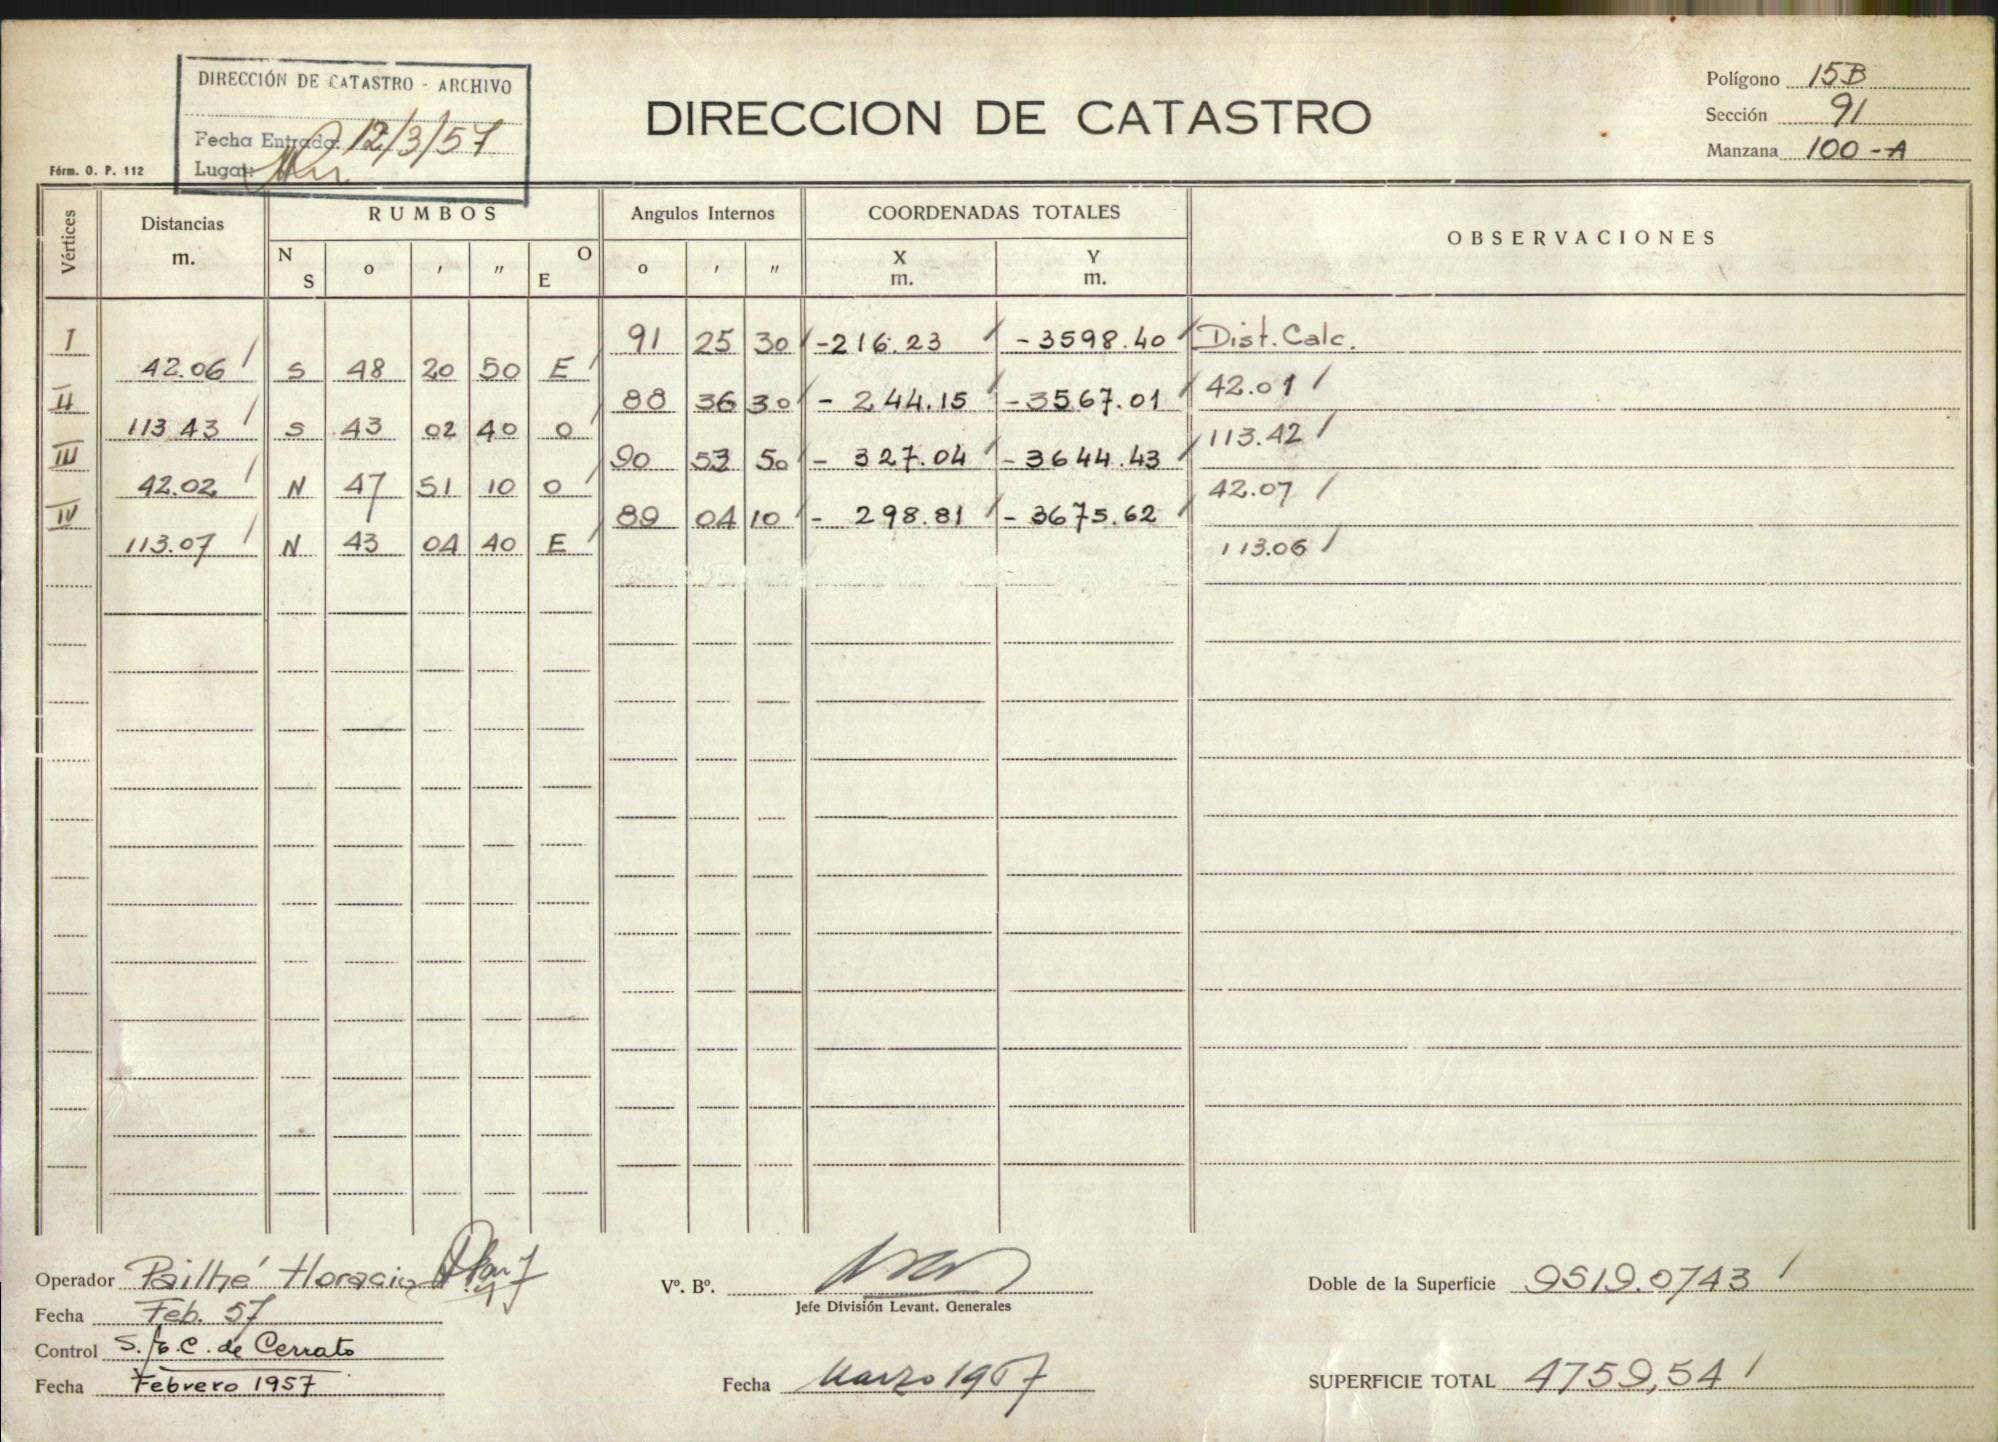 DIRECCIÓN DE CATASTRO - ARCHIVO
Fecha Entrada: 12/3/57
Lugar:
Fórm. O. P. 112
DIRECCION DE CATASTRO
Polígono 15B
Sección 91
Manzana 100-A
Vértices Distancias m. RUMBOS Angulos Internos COORDENADAS TOTALES OBSERVACIONES
N S o ' " E O o ' " X m. Y m.
I 91 25 30 -216.23 -3598.40 Dist. Calc.
42.06 S 48 20 50 E
II 88 36 30 - 244.15 -3567.01 42.01
113.43 S 43 02 40 O
III 90 53 50 - 327.04 -3644.43 113.42
42.02 N 47 51 10 O
IV 89 04 10 - 298.81 - 3675.62 42.07
113.07 N 43 04 40 E
113.06
Operador Pailhé Horacio
Fecha Feb. 57
Control S. E. C. de Cerrato
Fecha Febrero 1957
Vº. Bº.
Jefe División Levant. Generales
Fecha Marzo 1957
Doble de la Superficie 9519.0743
SUPERFICIE TOTAL 4759,54